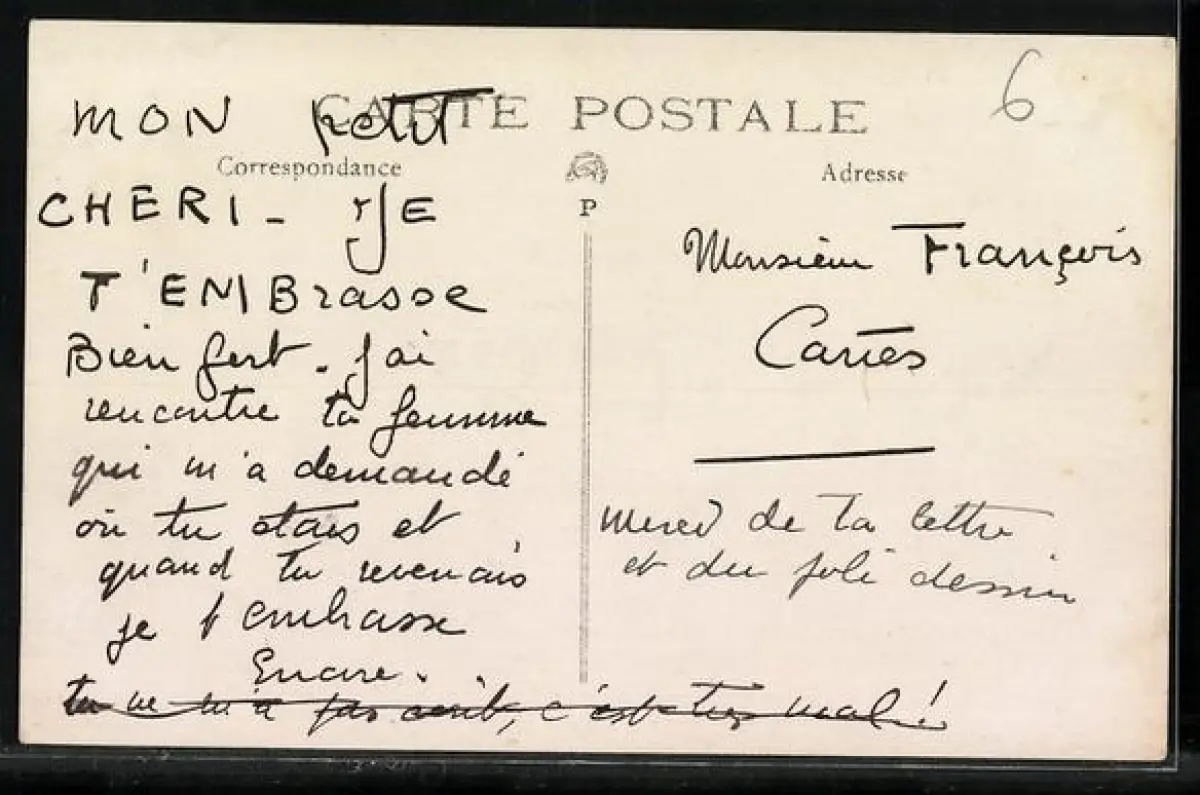 6
CARTE POSTALE
Correspondance
Adresse
P
MON petit
CHERI - JE
T'EMBrasse
Bien fort. J'ai
rencontre ta femme
qui m'a demandé
où tu étais et
quand tu revenais
je t'embrasse
Encore.
tu ne m'a pas écrit, c'est très mal!
Monsieur François
merci de ta lettre
et du joli dessin